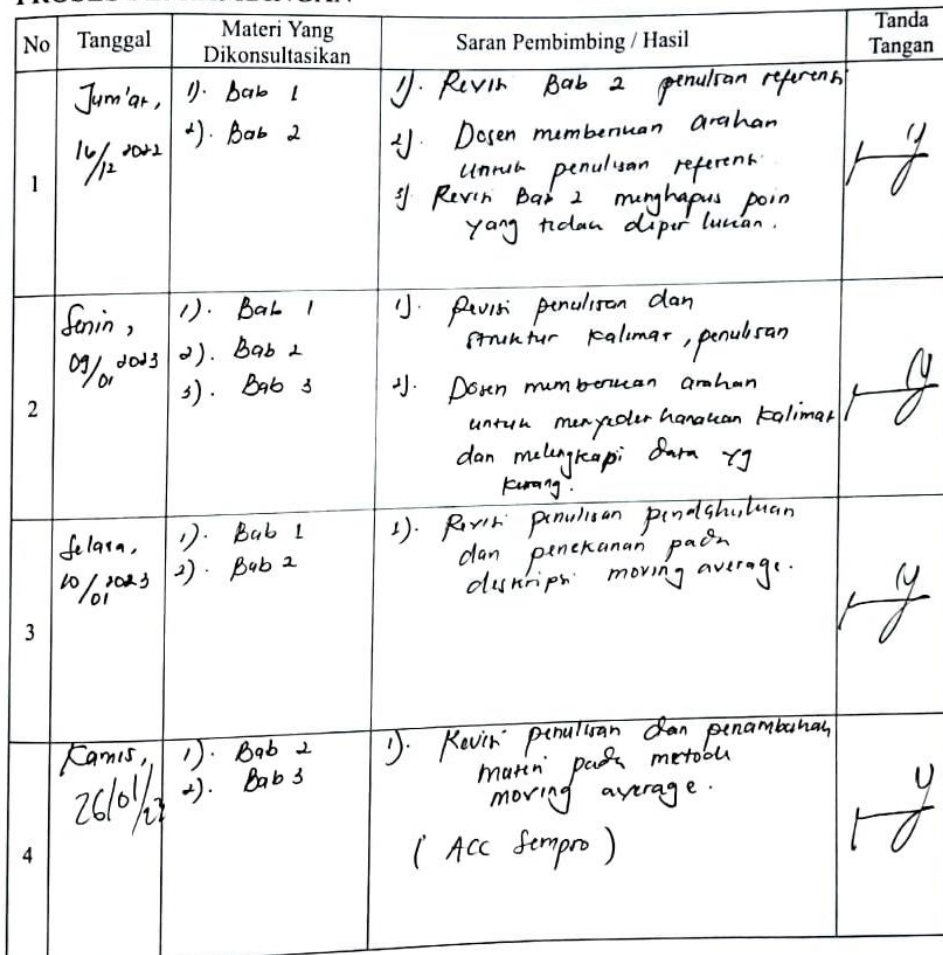 No
Tanggal
Materi Yang
Dikonsultasikan
Saran Pembimbing / Hasil
Tanda
Tangan
1
Jum'at,
16/12 2022
1). Bab 1
2). Bab 2
1). Revisi Bab 2 penulisan referensi
2). Dosen memberikan arahan
untuk penulisan referensi.
3) Revisi Bab 2 menghapus poin
yang tidak diperlukan.
2
Senin,
09/01 2023
1). Bab 1
2). Bab 2
3). Bab 3
1). Revisi penulisan dan
struktur kalimat, penulisan
2). Dosen memberikan arahan
untuk menyederhanakan kalimat
dan melengkapi data yg
kurang.
3
Selasa,
10/01 2023
1). Bab 1
2). Bab 2
1). Revisi penulisan pendahuluan
dan penekanan pada
deskripsi moving average.
4
Kamis,
26/01/23
1). Bab 2
2). Bab 3
1). Revisi penulisan dan penambahan
materi pada metode
moving average.
(ACC Sempro)